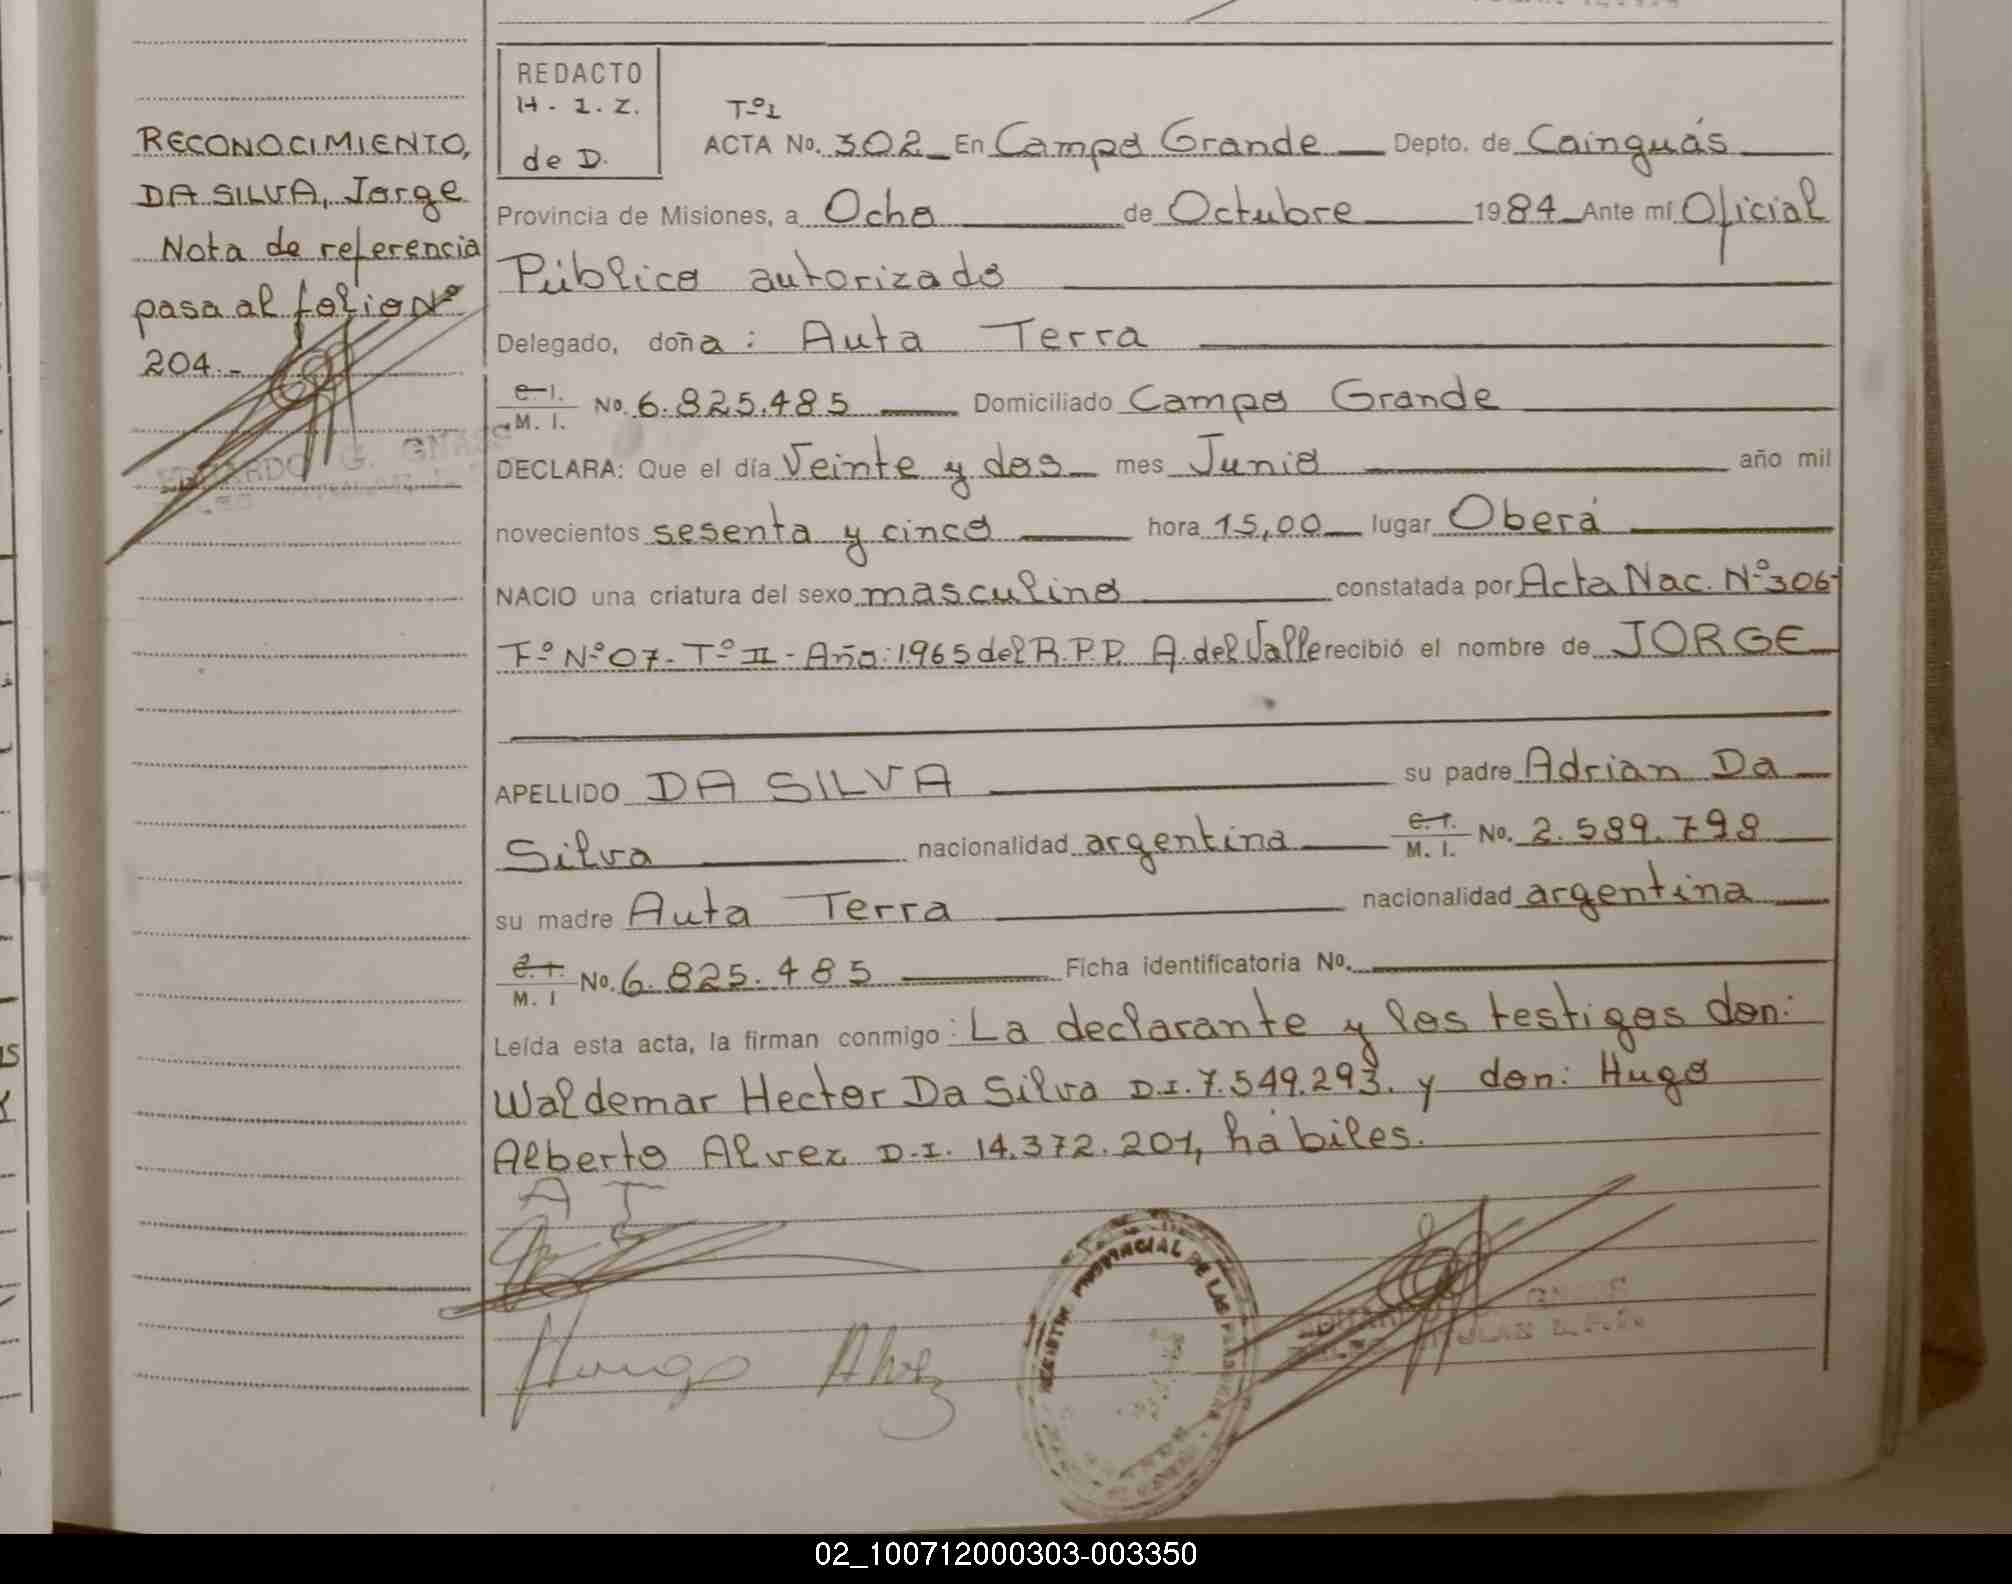 REDACTO
H-I.Z.
de D.
RECONOCIMIENTO,
DA SILVA, Jorge
Nota de referencia
pasa al folio Nº
204.-
EDUARDO G.
Tº1
ACTA No. 302 En Campo Grande Depto. de Cainguás
Provincia de Misiones, a Ocho de Octubre 1984 Ante mí Oficial
Público autorizado
Delegado, doña: Auta Terra
C.I. / M. I. No. 6.825.485 Domiciliado Campo Grande
DECLARA: Que el día Veinte y dos mes Junio año mil
novecientos sesenta y cinco hora 15,00 lugar Oberá
NACIO una criatura del sexo masculino constatada por Acta Nac. Nº306-
Fº Nº07-Tº II-Año:1965 del R.P.P. A. del Valle recibió el nombre de JORGE
APELLIDO DA SILVA su padre Adrian Da
Silva nacionalidad argentina C.I. / M. I. No. 2.589.798
su madre Auta Terra nacionalidad argentina
C.I. / M. I No. 6.825.485 Ficha identificatoria No.
Leída esta acta, la firman conmigo: La declarante y los testigos don:
Waldemar Hector Da Silva D.I. 7.549.293. y don: Hugo
Alberto Alvez D.I. 14.372.201, hábiles.
A T
Hugo Alvez
PROVINCIAL DE LAS PERSONAS
02_100712000303-003350